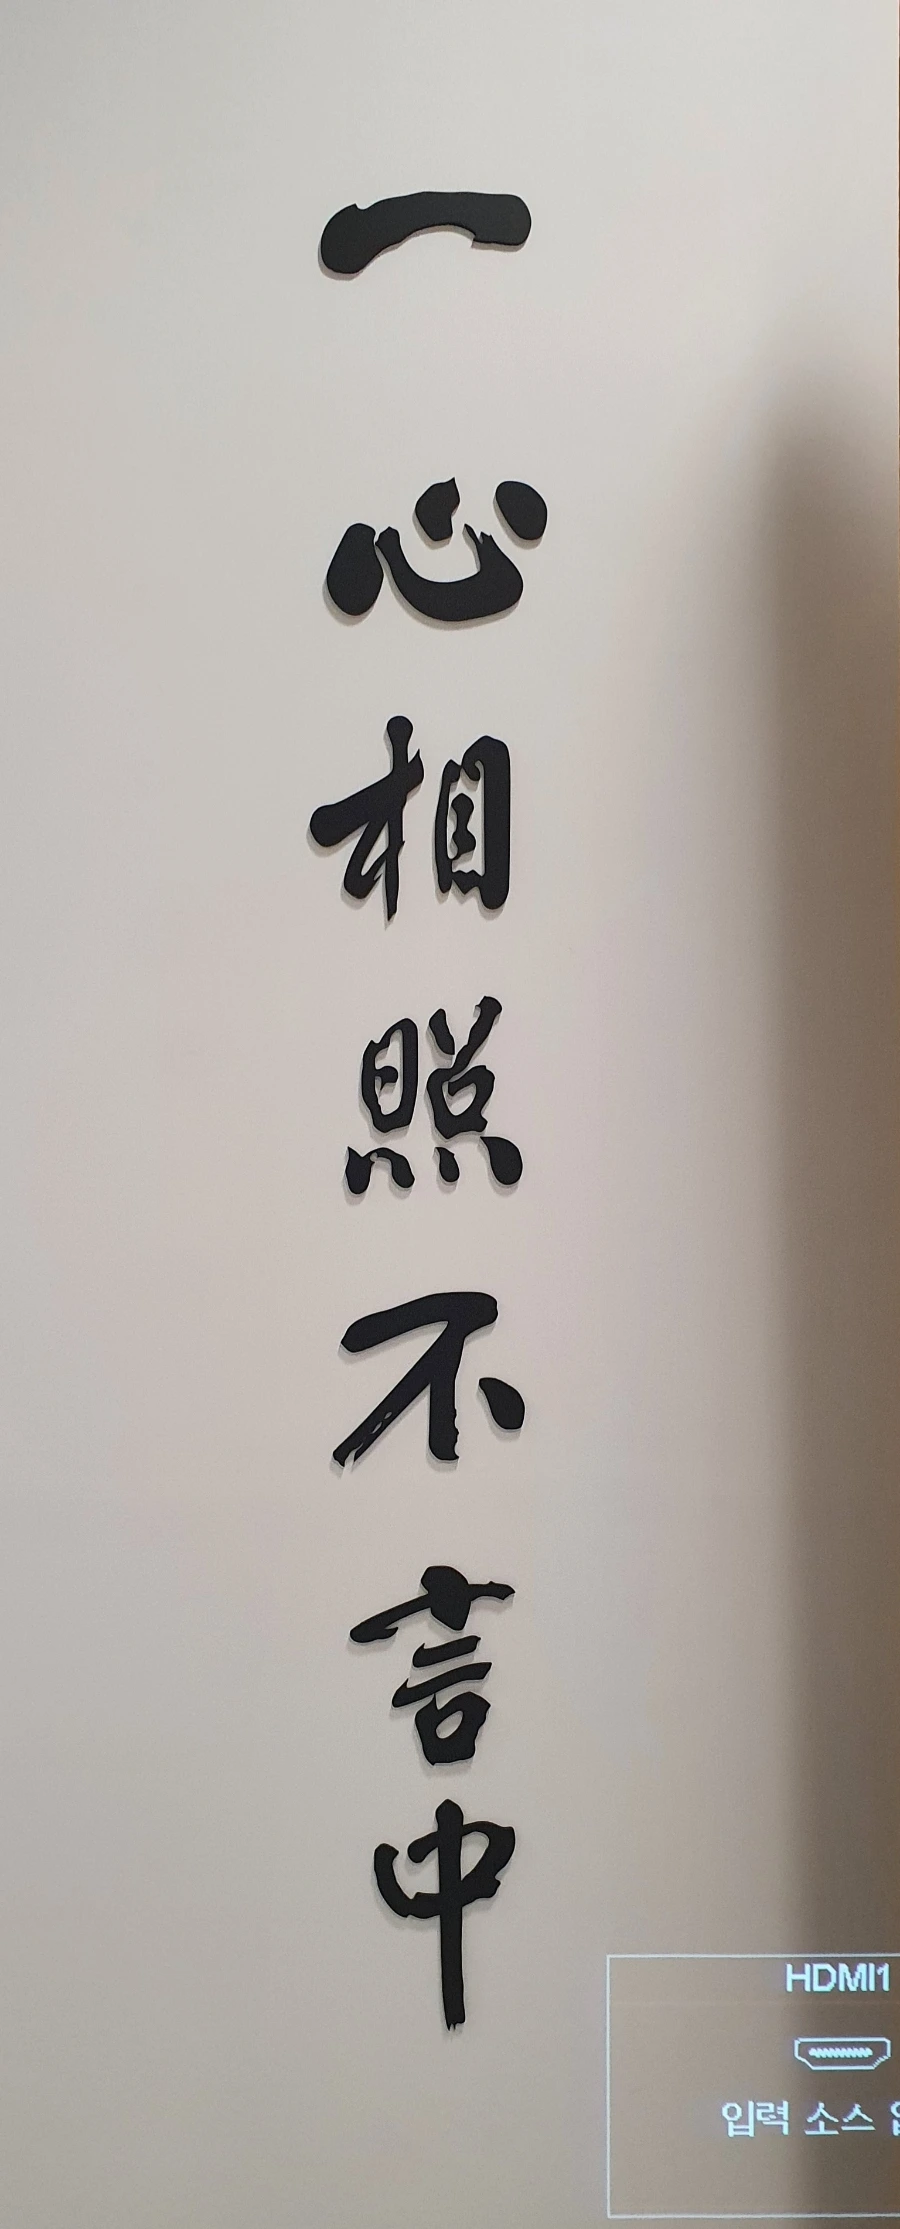 一心相照不言中
HDMI1
입력 소스